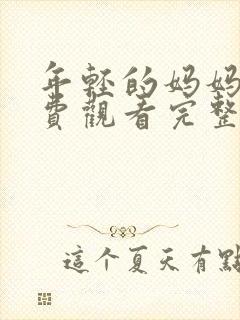 年輕的妈妈
費觀看完整
這个夏天有點